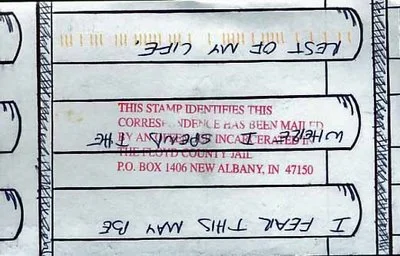 I FEAR THIS MAY BE
WHERE I SPEND THE
REST OF MY LIFE.
THIS STAMP IDENTIFIES THIS
CORRESPONDENCE HAS BEEN MAILED
BY AN INCARCERATED
THE FLOYD COUNTY JAIL
P.O. BOX 1406 NEW ALBANY, IN 47150